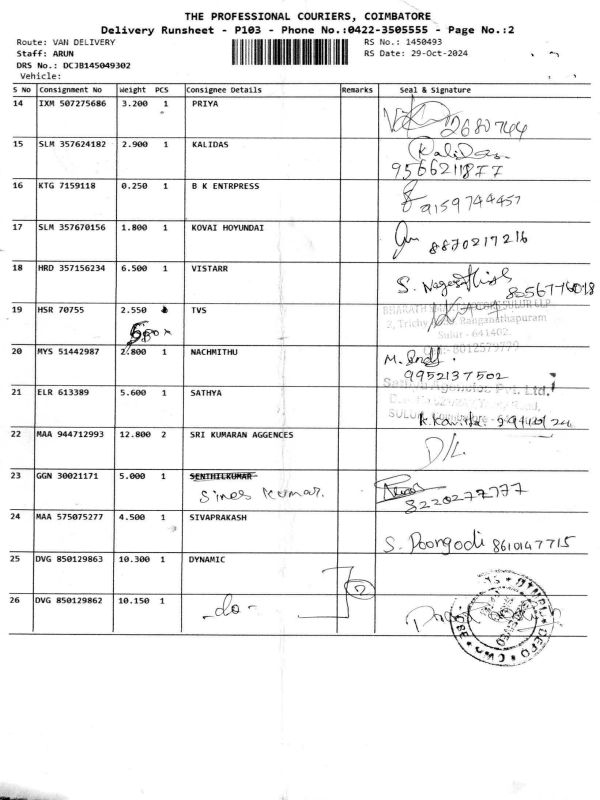 THE PROFESSIONAL COURIERS, COIMBATORE
Delivery Runsheet - P103 - Phone No.:0422-3505555 - Page No.:2
Route: VAN DELIVERY RS No.: 1450493
Staff: ARUN RS Date: 29-Oct-2024
DRS No.: DCJB145049302
Vehicle:
S No Consignment No Weight PCS Consignee Details Remarks Seal & Signature
14 IXM 507275686 3.200 1 PRIYA
15 SLM 357624182 2.900 1 KALIDAS Kalidas
9566211877
16 KTG 7159118 0.250 1 B K ENTRPRESS 9159744457
17 SLM 357670156 1.800 1 KOVAI HOYUNDAI 8870217216
18 HRD 357156234 6.500 1 VISTARR S.
19 HSR 70755 2.550 TVS
2, Trichy Ranganathapuram
Sulur - 641402.
8012579779
20 MYS 51442987 2.800 1 NACHMITHU M.
9952137502
21 ELR 613389 5.600 1 SATHYA Agencies Pvt. Ltd.
K. Kavitha
22 MAA 944712993 12.800 2 SRI KUMARAN AGGENCES D/L
23 GGN 30021171 5.000 1 SENTHILKUMAR
Sines Kumar. 8220277777
24 MAA 575075277 4.500 1 SIVAPRAKASH S. Poongodi 8610147715
25 DVG 850129863 10.300 1 DYNAMIC
2
26 DVG 850129862 10.150 1 -do-